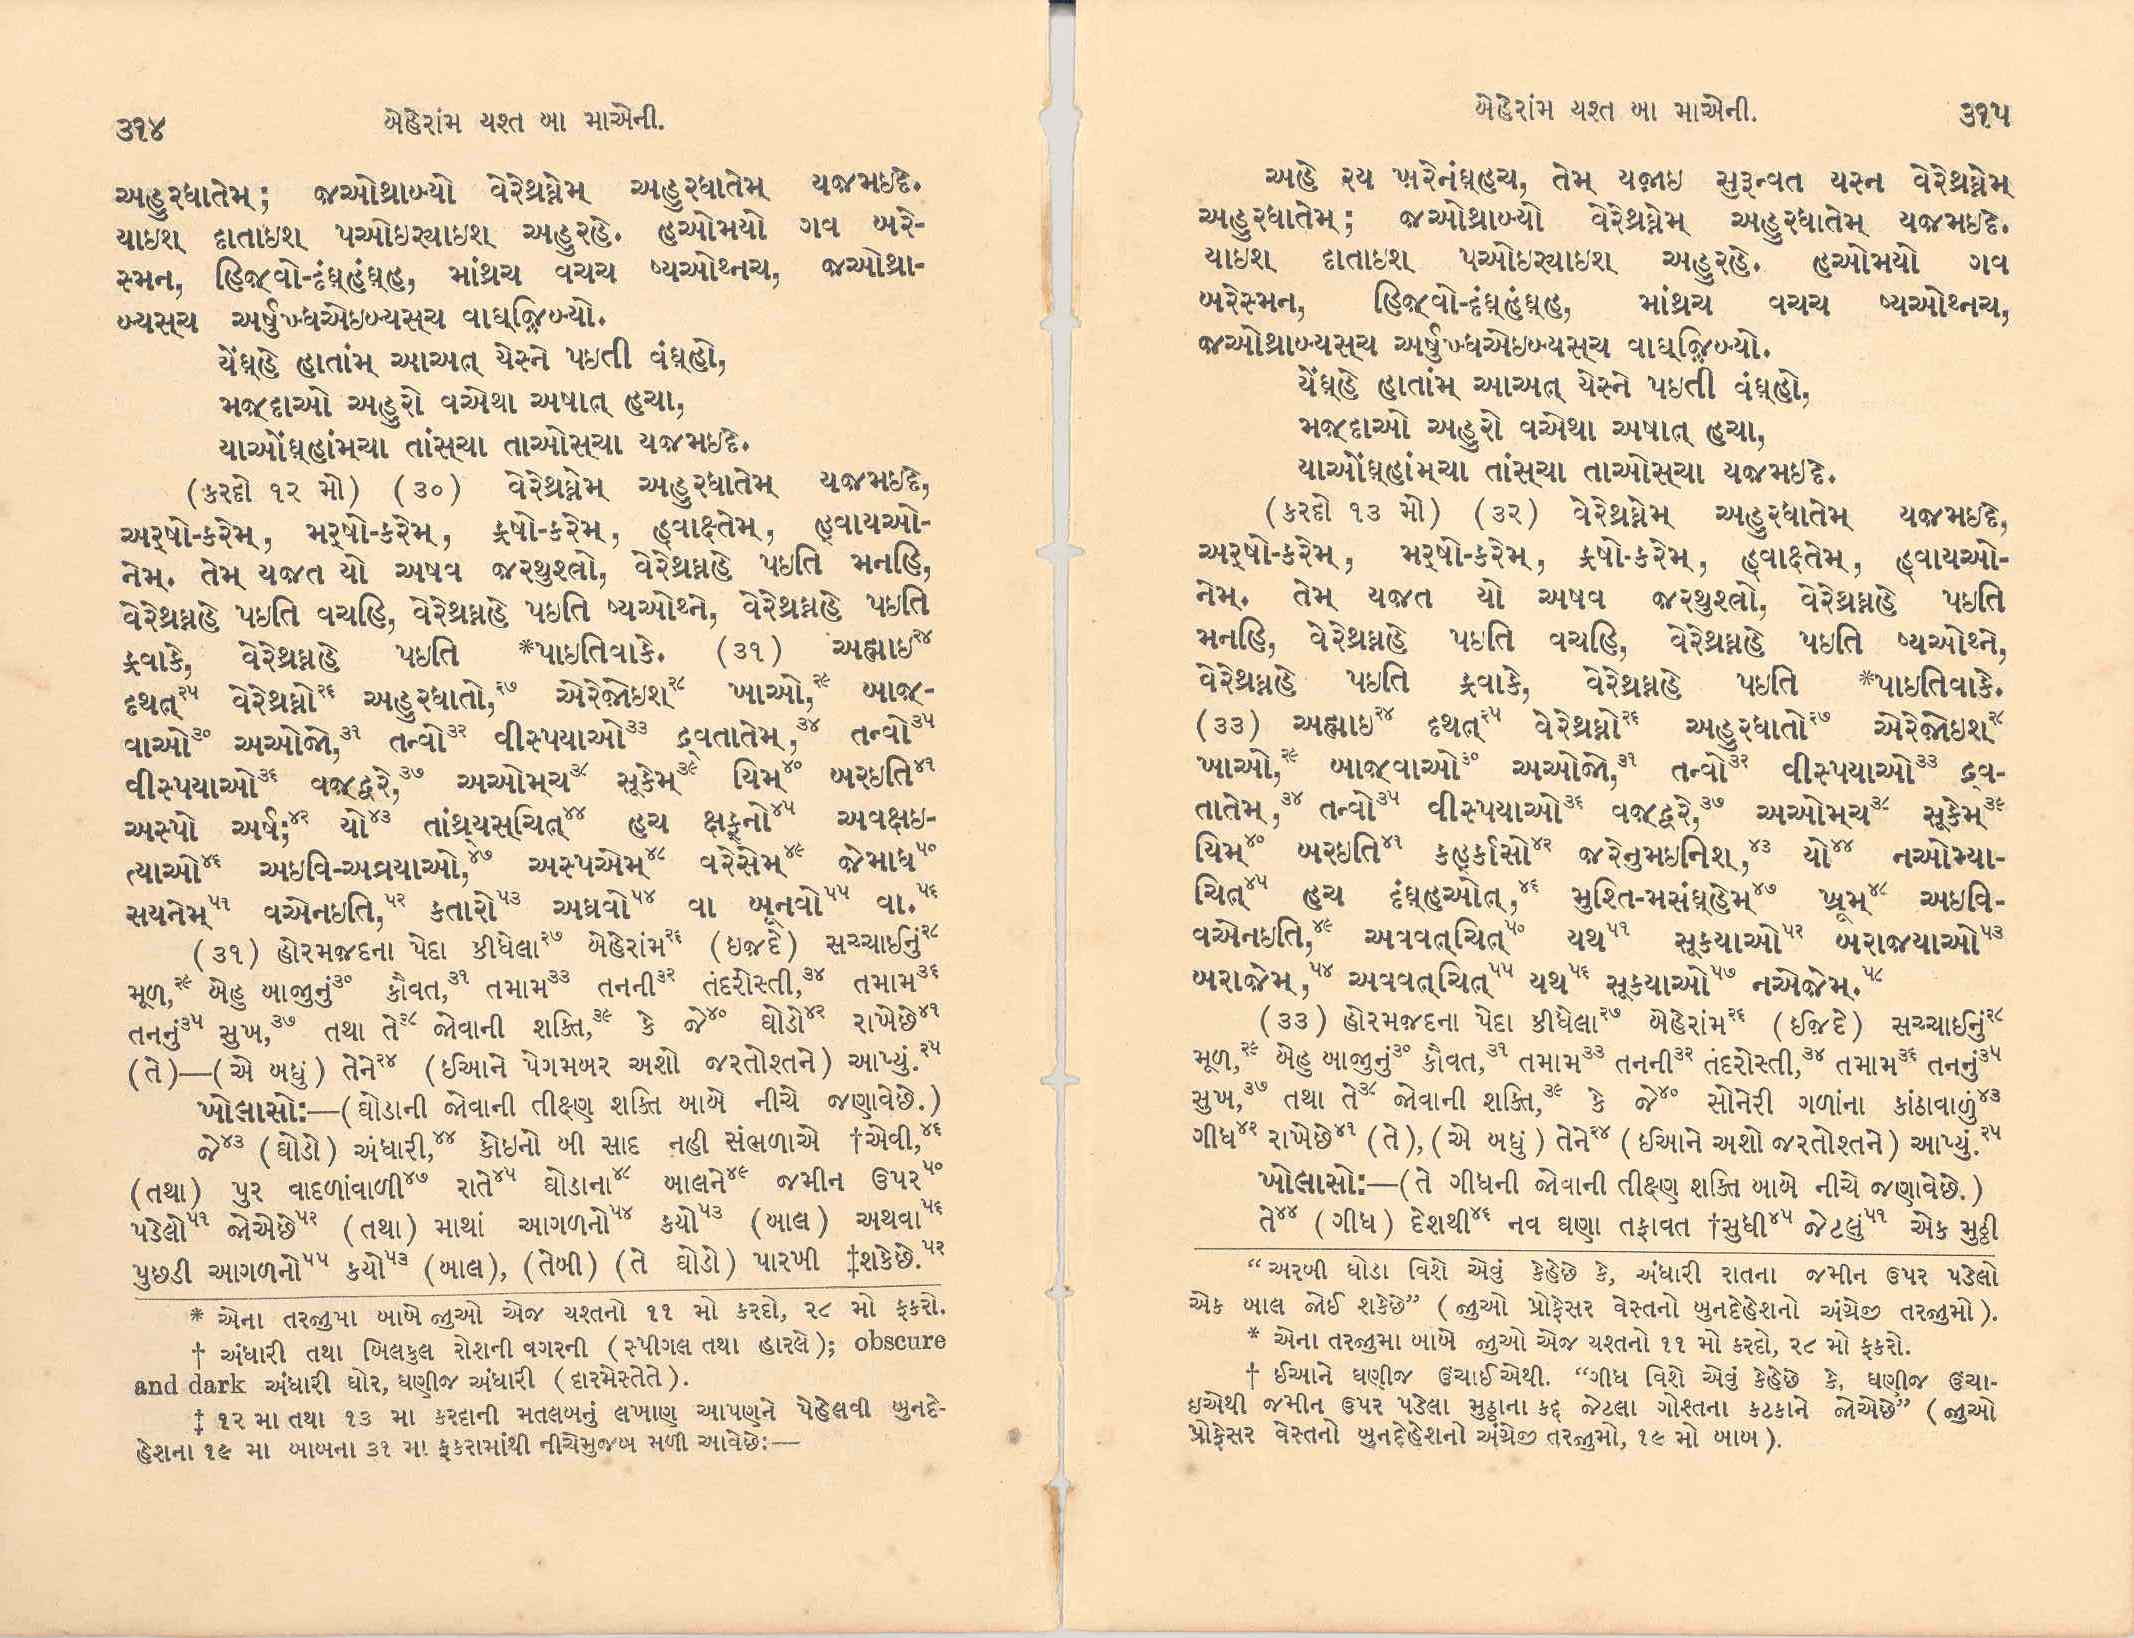 ૩૧૪ બેહેરાંમ યશ્ત બા માએની.
અહુરધાતેમ્; જઓથ્રાબ્યો વેરેથ્રઘ્નેમ્ અહુરધાતેમ્ યજમઇદે.
યાઇશ્ દાતાઇશ્ પઓઇરયાઇશ્ અહુરહે. હઓમયો ગવ બરે-
સ્મન, હિજ્વો-દંઘ્હંઘ્હ, માંથ્રચ વચચ ષ્યઓથ્નચ, જઓથ્રા-
બ્યસ્ચ અર્ષુખ્ધએઇબ્યસ્ચ વાઘ્જ઼િબ્યો.
યેંઘ્હે હાતાંમ્ આઅત્ યેસ્ને પઇતી વંઘ્હો,
મજ઼્દાઓ અહુરો વએથા અષાત્ હચા,
યાઓંઘ્હાંમ્ચા તાંસ્ચા તાઓસ્ચા યજમઇદે.
(કરદો ૧૨ મો) (૩૦) વેરેથ્રઘ્નેમ્ અહુરધાતેમ્ યજમઇદે,
અર્ષો-કરેમ્, મર્ષો-કરેમ્, ફ્રષો-કરેમ્, હ્વાક્ષ્તેમ્, હ્વાયઓ-
નેમ્. તેમ્ યજત યો અષવ જરથુશ્ત્રો, વેરેથ્રઘ્નહે પઇતિ મનહિ,
વેરેથ્રઘ્નહે પઇતિ વચહિ, વેરેથ્રઘ્નહે પઇતિ ષ્યઓથ્ને, વેરેથ્રઘ્નહે પઇતિ
ફ્રવાકે, વેરેથ્રઘ્નહે પઇતિ *પાઇતિવાકે. (૩૧) અહ્માઇ૨૪
દથત્૨૫ વેરેથ્રઘ્નો૨૬ અહુરધાતો,૨૭ એરેજોઇશ૨૮ ખાઓ,૨૯ બાજ઼્-
વાઓ૩૦ અઓજો,૩૧ તન્વો૩૨ વીસ્પયાઓ૩૩ દ્રવતાતેમ્,૩૪ તન્વો૩૫
વીસ્પયાઓ૩૬ વજ઼્દ્વરે,૩૭ અઓમ્ચ૩૮ સૂકેમ્૩૯ યિમ્૪૦ બરઇતિ૪૧
અસ્પો અર્ષ;૪૨ યો૪૩ તાંથ્ર્યસ્ચિત્૪૪ હચ ક્ષફ્નો૪૫ અવક્ષઇ-
ત્યાઓ૪૬ અઇવિ-અવ્રયાઓ,૪૭ અસ્પએમ્૪૮ વરેસેમ્૪૯ જેમાધ૫૦
સયનેમ્૫૧ વએનઇતિ,૫૨ કતારો૫૩ અધ્રવો૫૪ વા બૂનવો૫૫ વા.૫૬
(૩૧) હોરમજદના પેદા કીધેલા૨૭ બેહેરાંમ૨૬ (ઇજદે) સચ્ચાઈનું૨૮
મૂળ,૨૯ બેહુ બાજુનું૩૦ કૌવત,૩૧ તમામ૩૩ તનની૩૨ તંદરોસ્તી,૩૪ તમામ૩૬
તનનું૩૫ સુખ,૩૭ તથા તે૩૮ જોવાની શક્તિ,૩૯ કે જે૪૦ ઘોડો૪૨ રાખેછે૪૧
(તે)—(એ બધું) તેને૨૪ (ઈઆને પેગમબર અશો જરતોશ્તને) આપ્યું.૨૫
ખોલાસો:—(ઘોડાની જોવાની તીક્ષ્ણ શક્તિ બાબે નીચે જણાવેછે.)
જે૪૩ (ઘોડો) અંધારી,૪૪ કોઇનો બી સાદ નહી સંભળાએ †એવી,૪૬
(તથા) પુર વાદળાંવાળી૪૭ રાતે૪૫ ઘોડાના૪૮ બાલને૪૯ જમીન ઉપર૫૦
પડેલો૫૧ જોએછે૫૨ (તથા) માથાં આગળનો૫૪ કયો૫૩ (બાલ) અથવા૫૬
પુછડી આગળનો૫૫ કયો૫૩ (બાલ), (તેબી) (તે ઘોડો) પારખી ‡શકેછે.૫૨
* એના તરજુમા બાબે જુઓ એજ યશ્તનો ૧૧ મો કરદો, ૨૮ મો ફકરો.
† અંધારી તથા બિલકુલ રોશની વગરની (સ્પીગલ તથા હારલે); obscure
and dark અંધારી ઘોર, ઘણીજ અંધારી (દારમેસ્તેતે).
‡ ૧૨ મા તથા ૧૩ મા કરદાની મતલબનું લખાણ આપણને પેહેલવી બુનદે-
હેશના ૧૯ મા બાબના ૩૧ મા ફકરામાંથી નીચેમુજબ મળી આવેછે:—
બેહેરાંમ યશ્ત બા માએની. ૩૧૫
અહે રય ખ઼રેનંઘ્હચ, તેમ્ યજાઇ સુરૂન્વત યસ્ન વેરેથ્રઘ્નેમ્
અહુરધાતેમ્; જઓથ્રાબ્યો વેરેથ્રઘ્નેમ્ અહુરધાતેમ્ યજમઇદે.
યાઇશ્ દાતાઇશ્ પઓઇરયાઇશ્ અહુરહે. હઓમયો ગવ
બરેસ્મન, હિજ્વો-દંઘ્હંઘ્હ, માંથ્રચ વચચ ષ્યઓથ્નચ,
જઓથ્રાબ્યસ્ચ અર્ષુખ્ધએઇબ્યસ્ચ વાઘ્જ઼િબ્યો.
યેંઘ્હે હાતાંમ્ આઅત્ યેસ્ને પઇતી વંઘ્હો,
મજ઼્દાઓ અહુરો વએથા અષાત્ હચા,
યાઓંઘ્હાંમ્ચા તાંસ્ચા તાઓસ્ચા યજમઇદે.
(કરદો ૧૩ મો) (૩૨) વેરેથ્રઘ્નેમ્ અહુરધાતેમ્ યજમઇદે,
અર્ષો-કરેમ્, મર્ષો-કરેમ્, ફ્રષો-કરેમ્, હ્વાક્ષ્તેમ્, હ્વાયઓ-
નેમ્. તેમ્ યજત યો અષવ જરથુશ્ત્રો, વેરેથ્રઘ્નહે પઇતિ
મનહિ, વેરેથ્રઘ્નહે પઇતિ વચહિ, વેરેથ્રઘ્નહે પઇતિ ષ્યઓથ્ને,
વેરેથ્રઘ્નહે પઇતિ ફ્રવાકે, વેરેથ્રઘ્નહે પઇતિ *પાઇતિવાકે.
(૩૩) અહ્માઇ૨૪ દથત્૨૫ વેરેથ્રઘ્નો૨૬ અહુરધાતો૨૭ એરેજોઇશ૨૮
ખાઓ,૨૯ બાજ઼્વાઓ૩૦ અઓજો,૩૧ તન્વો૩૨ વીસ્પયાઓ૩૩ દ્રવ-
તાતેમ્,૩૪ તન્વો૩૫ વીસ્પયાઓ૩૬ વજ઼્દ્વરે,૩૭ અઓમ્ચ૩૮ સૂકેમ્૩૯
યિમ્૪૦ બરઇતિ૪૧ કહ્ર્કાસો૪૨ જરેનુમઇનિશ્,૪૩ યો૪૪ નઓમ્યા-
ચિત્૪૫ હચ દંઘ્હઓત્,૪૬ મુશ્તિ-મસંઘ્હેમ્૪૭ ખ્રૂમ્૪૮ અઇવિ-
વએનઇતિ,૪૯ અવવત્ચિત્૫૦ યથ૫૧ સૂકયાઓ૫૨ બરાજયાઓ૫૩
બરાજેમ્,૫૪ અવવત્ચિત્૫૫ યથ૫૬ સૂકયાઓ૫૭ નએજેમ્.૫૮
(૩૩) હોરમજદના પેદા કીધેલા૨૭ બેહેરાંમ૨૬ (ઈજદે) સચ્ચાઈનું૨૮
મૂળ,૨૯ બેહુ બાજુનું૩૦ કૌવત,૩૧ તમામ૩૩ તનની૩૨ તંદરોસ્તી,૩૪ તમામ૩૬ તનનું૩૫
સુખ,૩૭ તથા તે૩૮ જોવાની શક્તિ,૩૯ કે જે૪૦ સોનેરી ગળાંના કાંઠાવાળું૪૩
ગીધ૪૨ રાખેછે૪૧ (તે), (એ બધું) તેને૨૪ (ઈઆને અશો જરતોશ્તને) આપ્યું.૨૫
ખોલાસો:—(તે ગીધની જોવાની તીક્ષ્ણ શક્તિ બાબે નીચે જણાવેછે.)
તે૪૪ (ગીધ) દેશથી૪૬ નવ ઘણા તફાવત †સુધી૪૫ જેટલું૫૧ એક મુઠ્ઠી
“અરબી ઘોડા વિશે એવું કેહેછે કે, અંધારી રાતના જમીન ઉપર પડેલો
એક બાલ જોઈ શકેછે” (જુઓ પ્રોફેસર વેસ્તનો બુનદેહેશનો અંગ્રેજી તરજુમો).
* એના તરજુમા બાબે જુઓ એજ યશ્તનો ૧૧ મો કરદો, ૨૮ મો ફકરો.
† ઈઆને ઘણીજ ઉંચાઈએથી. “ગીધ વિશે એવું કેહેછે કે, ઘણીજ ઉંચા-
ઇએથી જમીન ઉપર પડેલા મુઠ્ઠાના કદ્દ જેટલા ગોશ્તના કટકાને જોએછે” (જુઓ
પ્રોફેસર વેસ્તનો બુનદેહેશનો અંગ્રેજી તરજુમો, ૧૯ મો બાબ).